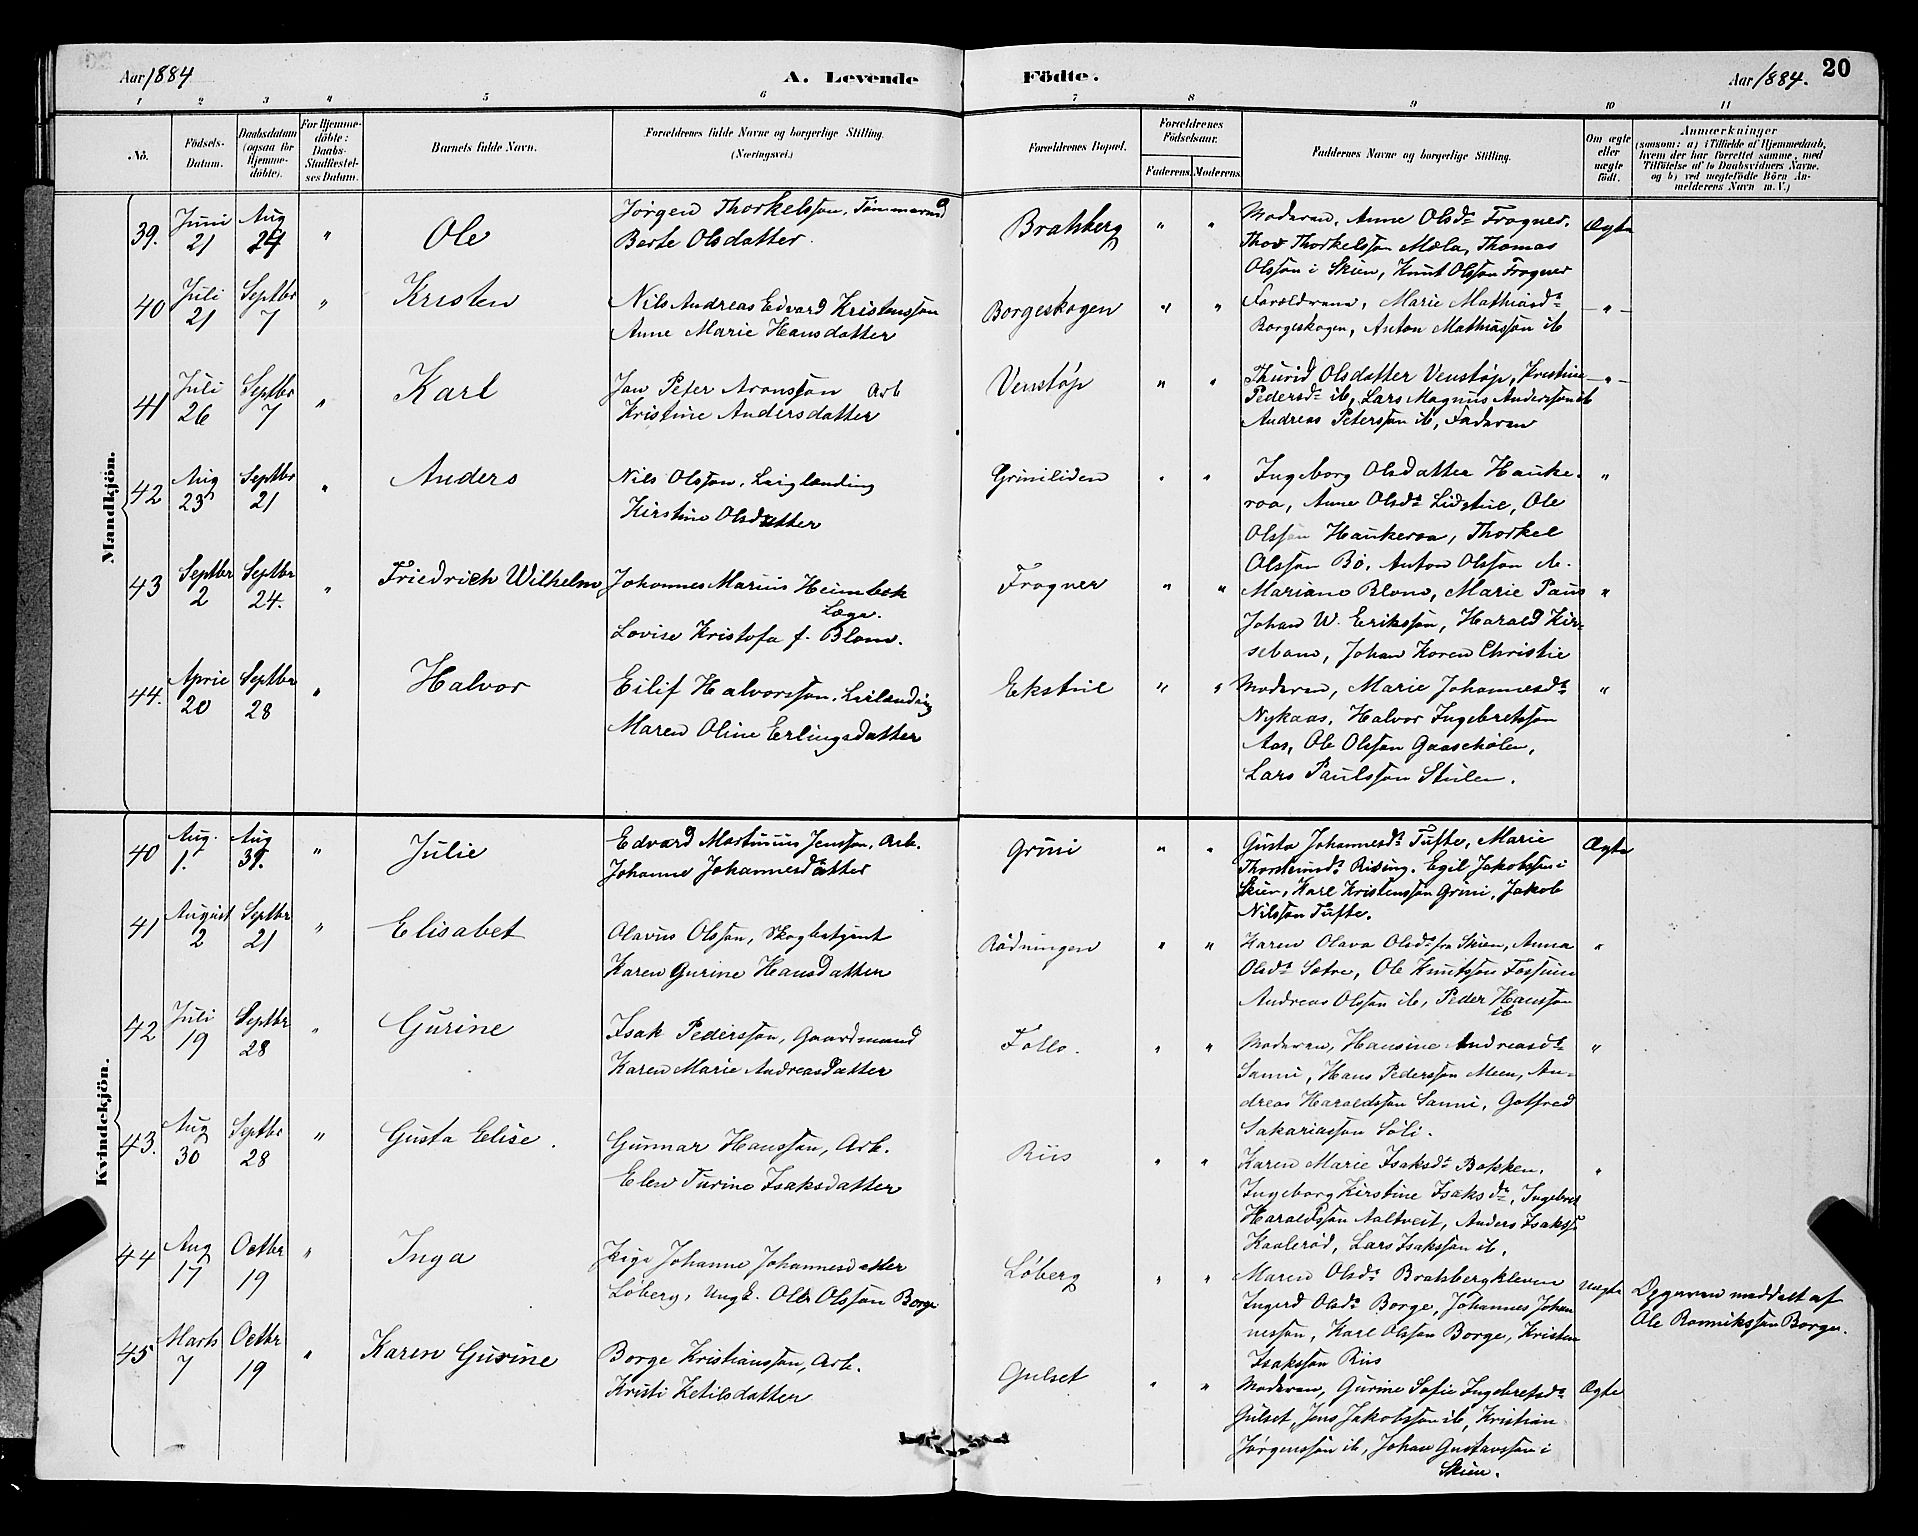 Aar 1884
A. Levende
Födte.
Aar 1884.
20
1 2 3 4 5 6 7 8 9 10 11
No.
Födsels-
Datum.
Daabsdatum
(ogsaa for
Hjemme-
döbte).
For Hjemme-
döbte:
Daabs-
Stadfæstel-
ses Datum.
Barnets fulde Navn.
Forældrenes fulde Navne og borgerlige Stilling.
(Næringsvei.)
Forældrenes Bopæl.
Forældrenes
Födselsaar.
Faderens. Moderens.
Faddernes Navne og borgerlige Stilling.
Om ægte
eller
uægte
födt.
Anmærkninger
(saasom: a) i Tilfælde af Hjemmedaab,
hvem der har forrettet samme, med
Tilföielse af to Daabsvidners Navne,
og b) ved uegtefödte Börn An-
melderens Navn m. V.)
Mandkjön.
39. Juni 21 Aug 24 " Ole
Jörgen Thorkelssön, Tömmermd
Berte Olsdatter.
Bratsberg " "
Moderen, Anne Olsdr Frogner,
Thor Thorkelssön Mæla, Thomas
Olssön i Skien, Knut Olssön Frogner
Ægte
40 Juli 21 Septbr 7 " Kristen
Nils Andreas Edvard Kristenssön
Anne Marie Hansdatter
Borgeskogen " "
Forældrene, Marie Mathiasdr
Borgeskogen, Anton Mathiassön ib
- " -
41 Juli 26 Septbr 7 " Karl
Jan Peter Aronssön Arb
Kristine Andersdatter
Venstöp " "
Thurid Olsdatter Venstöp, Kristine
Pedersdr ib, Lars Magnus Anderssön ib
Andreas Peterssön ib, Faderen
- " -
42 Aug 23 Septbr 21 " Anders
Nils Olssön, Leiglænding
Kirstine Olsdatter
Griniliden " "
Ingeborg Olsdatter Hauke-
roa, Anne Olsdr Lidstul, Ole
Olssön Haukeroa, Thorkel
Olssön Bö, Anton Olssön ib.
"
43 Septbr 2 Septbr 24. " Friedrich Wilhelm
Johannes Marius Heimbek
Læge.
Lovise Kristofa f. Blom.
Frogner " "
Mariane Blom, Marie Paus
Johan W. Erikssön, Harald Kir-
sebom, Johan Koren Christie
"
44. April 20 Septbr 28 " Halvor
Eilif Halvorssön, Leilænding
Maren Oline Erlingsdatter
Ekstul " "
Moderen, Marie Johannesdr
Nykaas, Halvor Ingebretssön
Aas, Ole Olssön Gaaseholen,
Lars Paulssön Stulen.
"
Kvindekjön.
40 Aug. 1. Aug 31. " Julie
Edvard Martinius Jenssön, Arb.
Johanne Johannesdatter
Grini " "
Gusta Johannesdr Tufte, Marie
Thorsteinsdr Rising, Egil Jakobssön i
Skien, Karl Kristenssön Grini, Jakob
Nilssön Tufte.
Ægte
41 August 2 Septbr 21 " Elisabet
Olavus Olssön, Skogbetjent
Karen Gurine Hansdatter
Rödningen " "
Karen Olava Olsdr fra Skien, Anna
Olsdr Sætre, Ole Knutssön Fossum
Andreas Olssön ib, Peder Hanssön
ib
"
42 Juli 19 Septbr 28 " Gurine
Isak Pederssön, Gaardmand
Karen Marie Andreasdatter
Follo. " "
Moderen, Hansine Andreasdr
Sanni, Hans Pederssön Meen, An-
dreas Haraldssön Sanni, Gotfred
Sakariassön Soli.
"
43. Aug 30 Septbr 28 " Gusta Elise.
Gunnar Hanssön, Arb.
Elen Turine Isaksdatter
Riis " "
Karen Marie Isaksdr Bakken,
Ingeborg Kirstine Isaksdr, Ingebret
Haraldssön Aaltveit, Anders Isakss
Kaaleröd, Lars Isakssön ib.
"
44 Aug 17 Octbr 19 " Inga
Pige Johanne Johannesdatter
Löberg, Ungk. Ole Olssön Borge
Löberg " "
Maren Olsdr Bratsbergkleven
Ingerd Olsdr Borge, Johannes Johan
nessön, Karl Olssön Borge, Kristen
Isakssön Riis
Uægte
Opgaven meddelt af
Ole Romikssön Borge.
45 Marts 7 Octbr 19 " Karen Gurine
Borge Kristianssön, Arb.
Kristi Ketilsdatter
Gulset " "
Moderen, Gurine Sofie Ingebretsdr
Gulset, Jens Jakobssön ib, Kristian
Jörgenssön ib, Johan Gustavssön i
Skien.
Ægte